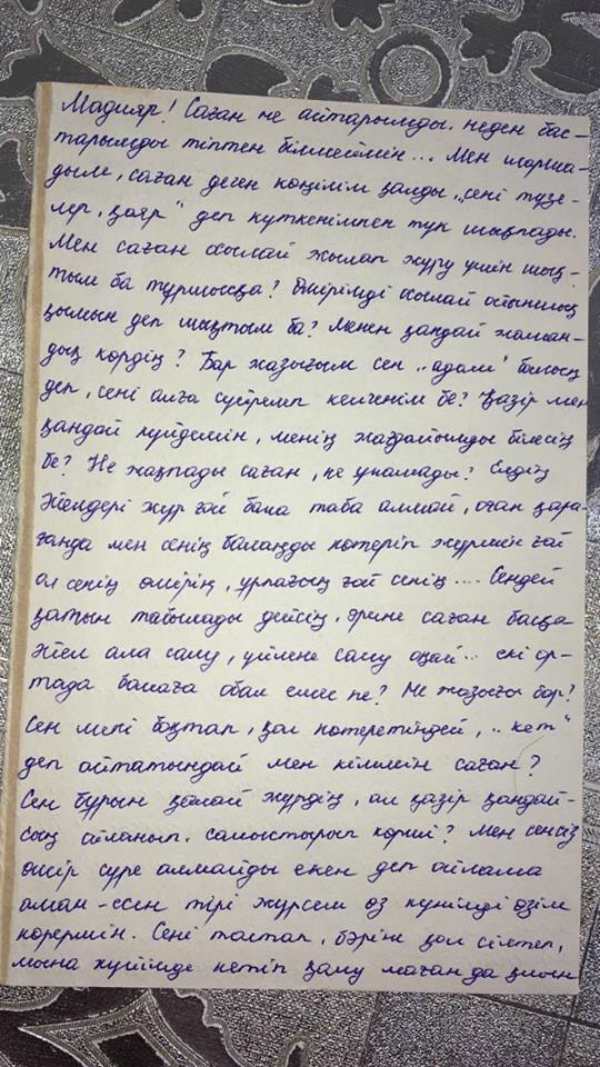 Мадияр! Саған не айтарымды. неден бас-
тарымды тіптен білмеймін... Мен шарша-
дым, саған деген көңілім қалды, „сені түзе-
лер, қояр" деп күткенімпен түк шықпады.
Мен саған осылай жылап жүру үшін шық-
тым ба тұрмысқа? Өмірімді осылай ойыншық
қымын деп шықтым ба? Менен қандай жаман-
дық көрдің? Бар жазығым сен „адам" болшы
деп, сені алға сүйремп келгенім бе? Қазір мен
қандай күйдемін, менің жағдайымды білесің
бе? Не жақпады саған, не ұнамады? Елдің
әйелдері жүр ғой бала таба алмай, оған қара-
ғанда мен сенің балаңды көтеріп жүрмін ғой
ол сенің өмірің, ұрпағың ғой сенің.... Сендей
қатын табылады дейсің, әрине саған басқа
әйел ала салу, үйлене салу оңай.. екі ор-
тада балаға обал емес пе? Не жазығы бар?
Сен мені боқтап, қол көтеретіндей, „кет"
деп айтатындай мен кіммін саған?
Сен бұрын қалай жүрдің, ал қазір қандай-
сың ойланып. салыстырып көрші? Мен сенсіз
өмір сүре алмайды екен деп ойлама
аман-есен тірі жүрсем өз күнімді өзім
көрермін. Сені тастап, бәріне қол сілтеп,
мына күйімде кетіп қалу маған да қиын